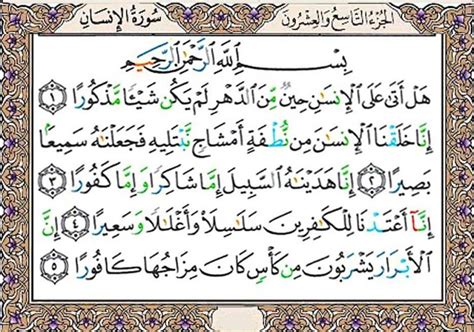 الجزء التاسع والعشرون
سورة الإنسان
بِسْمِ اللَّهِ الرَّحْمَٰنِ الرَّحِيمِ
هَلْ أَتَىٰ عَلَى الْإِنسَٰنِ حِينٌ مِّنَ الدَّهْرِ لَمْ يَكُن شَيْـًٔا مَّذْكُورًا ۝١
إِنَّا خَلَقْنَا الْإِنسَٰنَ مِن نُّطْفَةٍ أَمْشَاجٍ نَّبْتَلِيهِ فَجَعَلْنَٰهُ سَمِيعًا
بَصِيرًا ۝٢ إِنَّا هَدَيْنَٰهُ السَّبِيلَ إِمَّا شَاكِرًا وَإِمَّا كَفُورًا ۝٣
إِنَّآ أَعْتَدْنَا لِلْكَٰفِرِينَ سَلَٰسِلَا۟ وَأَغْلَٰلًا وَسَعِيرًا ۝٤ إِنَّ
الْأَبْرَارَ يَشْرَبُونَ مِن كَأْسٍ كَانَ مِزَاجُهَا كَافُورًا ۝٥